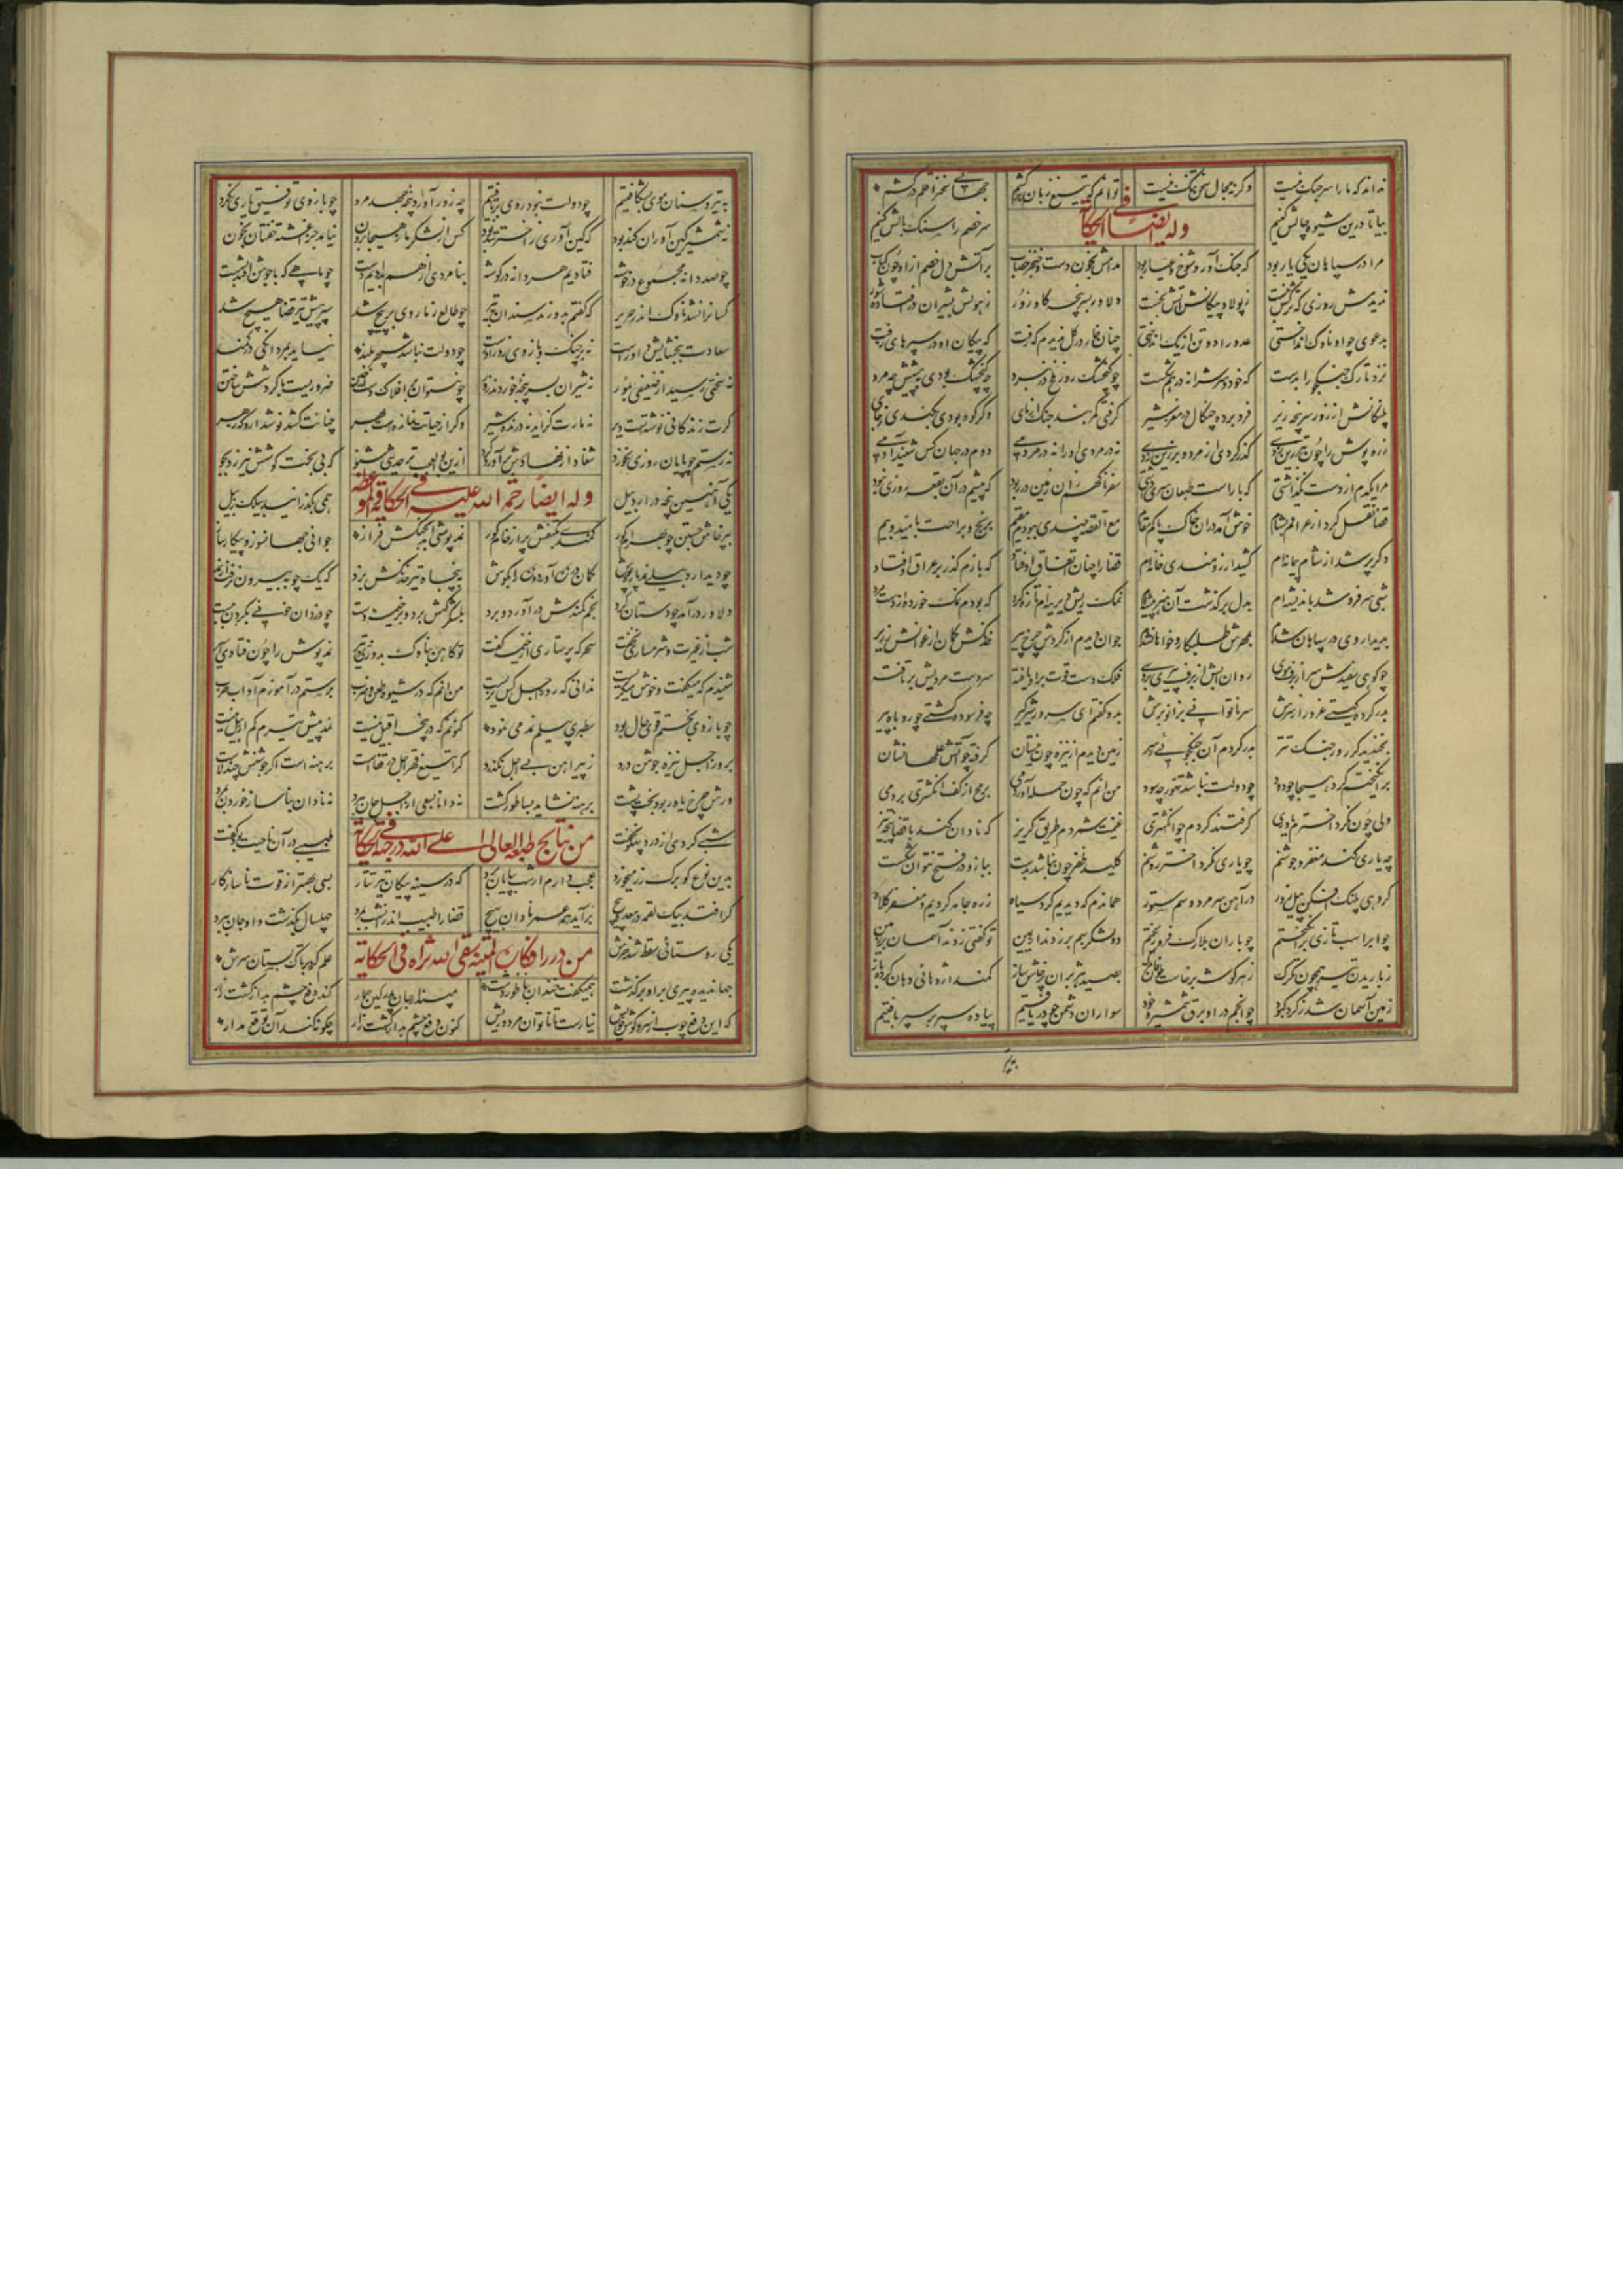 نداند که ما را سر جنگ نیست وگرنه مجال سخن تنگ نیست توانم که تیغ زبان برکشم جهانی سخن را قلم درکشم
بیا تا درین شیوه چالش کنیم وله ایضا فی الحکایة سر خصم را سنگ بالش کنیم
مرا در سپاهان یکی یار بود که جنگ آور و شوخ و عیار بود مدامش بخون دست و خنجر خضاب بر آتش دل خصم ازو چون کباب
ندیدمش روزی که ترکش نبست ز پولاد پیکانش آتش نجست دلاور بسرپنجه گاو زور ز هولش بشیران در افتاده شور
بدعوی چو او ناوک انداختی عدو را دو تن از یک انداختی چنان خار در گل ندیدم که رفت که پیکان او در سپرهای زفت
نزد تارک جنگجو را بدست که خود و سرش را نه درهم شکست چو گنجشک روز ملخ در نبرد چه گنجشک بودی به پیشش چه مرد
پلنگانش از زور سرپنجه زیر فرو برده چنگال در مغز شیر گرفتی کمربند جنگ آزمای وگر کوه بودی بکندی ز جای
زره پوش را چون تبرزین زدی گذر کردی از مرد و بر زین زدی نه در مردی او را نه در مردمی دوم در جهان کس شنید آدمی
مرا یکدم از دست نگذاشتی که با راست طبعان سری داشتی سفر ناگهم زان زمین در ربود که بیشم در آن بقعه روزی نبود
قضا نقل کرد از عراقم بشام خوش آمد در آن خاک پاکم مقام مع القصه چندی ببودم مقیم برنج و براحت بامید و بیم
دگر پر شد از شام پیمانه ام کشید آرزومندی خانه ام قضا را چنان اتفاق اوفتاد که بازم گذر بر عراق اوفتاد
شبی سر فرو شد باندیشه ام بدل برگذشت آن هنر پیشه ام نمک ریش دیرینه ام تازه کرد که بودم نمک خورده از دست مرد
بدیدار وی در سپاهان شدم بمهرش طلبکار و خواهان شدم جوان دیدم از گردش چرخ پیر خدنگش کمان ارغوانش زریر
چو کوهی سفیدش سر از برف موی روان آبش از برف پیری بروی فلک دست قوت برو یافته سر دست مردیش برتافته
بدر کرده گیتی غرور از سرش سر ناتوانی بزانو برش بدو گفتم ای سرور شیرگیر چه فرسوده گشتی چو روباه پیر
بخندید کز روز جنگ تتر بدر کردم آن جنگجویی ز سر زمین دیدم از نیزه چون نیستان گرفته چو آتش علمها نشان
برانگیختم گرد هیجا چو دود چو دولت نباشد تهور چه سود من آنم که چون حمله آوردمی برمح از کف انگشتری بردمی
ولی چون نکرد اخترم یاوری گرفتند گردم چو انگشتری غنیمت شمردم طریق گریز که نادان کند با قضا پنجه تیز
چه یاری کند مغفر و جوشنم چو یاری نکرد اختر روشنم کلید ظفر چون نباشد بدست ببازو در فتح نتوان شکست
گروهی پلنگ افکن پیل زور در آهن سر مرد و سم ستور هماندم که دیدیم گرد سپاه زره جامه کردیم و مغفر کلاه
چو ابر اسب تازی برانگیختم چو باران بلارک فرو ریختم دو لشکر بهم بر زدند از کمین تو گفتی زدند آسمان بر زمین
ز باریدن تیر همچون تگرگ ز هر گوشه برخاست طوفان مرگ بصید هزبران پرخاش ساز کمند اژدهائی دهان کرده باز
زمین آسمان شد ز گرد کبود چو انجم درو برق شمشیر و خود سواران دشمن چو دریافتیم پیاده سپر بر سپر بافتیم
به تیر و سنان موی بشکافتیم چو دولت نبود روی برتافتیم چه زور آورد پنجه جهد مرد چو بازوی توفیق یاری نکرد
نه شمشیر کین آوران کند بود که کین آوری ز اختر تند بود کس از لشکر ما ز هیجا برون نیامد جز آغشته خفتان بخون
چو صد دانه مجموع در خوشه فتادیم هر دانه در گوشه بنامردی از هم بدادیم دست چو ماهی که با جوشن افتد بشست
کسانرا نشد ناوک اندر حریر که گفتم بدوزند سندان بتیر چو طالع ز ما روی بر پیچ شد سپر پیش تیر قضا هیچ شد
سعادت ببخشایش داورست نه در چنگ و بازوی زورآورست چو دولت نباشد سپهر بلند نیاید بمردانگی در کمند
نه سختی رسید از ضعیفی بمور نه شیران بسرپنجه خوردند و زور چو نتوان بر افلاک دست آختن ضروریست با گردشش ساختن
گرت زندگانی نوشتست دیر نه مارت گزاید نه درنده شیر وگر از حیاتت نمانده ست بهر چنانت کشد نوشدارو که زهر
نه رستم چو پایان روزی بخورد شغاد از نهادش برآورد گرد ازین بوالعجب تر حدیثی شنو که بی بخت کوشش نیرزد بجو
یکی آهنین پنجه در اردبیل وله ایضا رحمة الله علیه فی الحکایة و الموعظه همی بگذرانید بیلک ز بیل
بپرخاش جستن چو بهرام گور کمندی بکتفش پر از خام گور نمد پوشی آمد بجنگش فراز جوانی جهانسوز و پیکار ساز
چو دید اردبیلی نمد پاره پوش کمان در زه آورد و زه را بگوش بپنجاه تیر خدنگش بزد که یک چوبه بیرون نرفت از نمد
دلاور درآمد چو دستان گرد بخم کمندش درآورد و برد بلشکرگهش برد و بر خیمه دست چو دزدان خونی بگردن ببست
شب از غیرت و شرمساری نخفت سحرگه پرستاری از خیمه گفت تو کاهن بناوک بدوزی و تیر نمد پوش را چون فتادی اسیر
شنیدم که میگفت و خون میگریست ندانی که روز اجل کس نزیست من آنم که در شیوه طعن و ضرب برستم درآموزم آداب حرب
چو بازوی بختم قوی حال بود سطبری بیلم نمد می نمود کنونم که در پنجه اقبیل نیست نمد پیش تیرم کم از بیل نیست
بروز اجل نیزه جوشن درد ز پیراهن بی اجل نگذرد کرا تیغ قهر اجل در قفاست برهنه است اگر جوشنش چند لاست
ورش چرخ یاور بود بخت پشت برهنه نشاید بساطور کشت نه دانا بسعی از اجل جان ببرد نه نادان بناساز خوردن بمرد
شبی کردی از درد پهلو نخفت من نتایج طبعه العالی اعلی الله درجته فی الحکایة طبیبی در آن ناحیت بود گفت
بدین نوع کو برگ رز میخورد عجب دارم ار شب بپایان برد که در سینه پیکان تیر تتار بسی بهتر از قوت ناسازگار
گر افتد بیک لقمه در روده پیچ برآید همه عمر نادان بهیچ قضا را طبیب اندران شب بمرد چهل سال بگذشت و او جان ببرد
یکی روستائی سقط شد خرش من درر افکاره المتینه سقی الله ثراه فی الحکایة علم کرد بر تاک بستان سرش
جهاندیده پیری برو برگذشت همیگفت خندان بناطور دشت مپندار جان پدر کین حمار کند دفع چشم بد از کشت زار
که این دفع چوب از سر و گوش خویش نیارست تا ناتوان مرد و ریش کنون دفع چشم بد از کشت زار چگونه کند آن توقع مدار